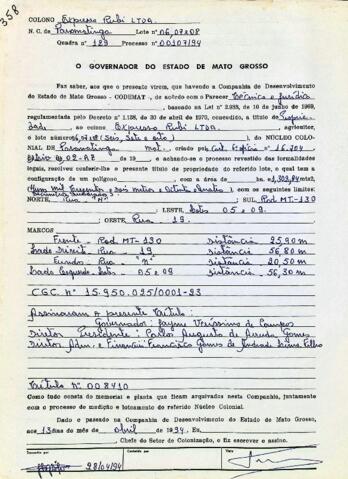 358
COLONO Expresso Rubi LTDA.
N. C. de Paranatinga Lote nº 06,07 e 08
Quadra nº 189 Processo = 00107/94
O GOVERNADOR DO ESTADO DE MATO GROSSO
Faz saber, aos que o presente virem, que havendo a Companhia de Desenvolvimento
do Estado de Mato Grosso - CODEMAT -, de acordo com o Parecer Técnico e Jurídico
, baseado na Lei nº 2.988, de 10 de junho de 1969,
regulamentada pelo Decreto nº 1.138, de 30 de abril de 1970, concedido, a título de
ao colono Expresso Rubi LTDA. , agricultor,
o lote números 6, 7 e 8 (Seis, Sete e oito) , do NÚCLEO COLO-
NIAL DE Paranatinga Mat. , criado pelo nº 16.704
02-02 de 19 e achando-se o processo revestido das formalidades
legais, resolveu conferir-lhe o presente título de propriedade do referido lote, o qual tem a
configuração de um polígono com a área de 1.303,84m2
com os seguintes limites:
NORTE, Rua "N" SUL Rod MT-130
LESTE, Lotes 05 e 09.
OESTE Rua 19.
MARCOS
Frente - Rod. MT-130 distância 25,90 m
Lado Direito - Rua 19 distância 56,80 m
Fundos - Rua "N" distância 20,50 m
Lado Esquerdo - Lotes 05 e 09 distância 56,30 m
C.G.C. Nº 15.950.025/0001-23
Assinaram o presente Título:
Governador: Jayme Veríssimo de Campos
Diretor Presidente: Carlos Augusto de Arruda Gomes
Diretor Adm. e Financ: Francisco Gomes de Andrade Lima Filho
Título Nº 008410
Como tudo consta do memorial e planta que ficam arquivados nesta Companhia,
juntamente com o processo de medição e loteamento do referido Núcleo Colonial.
Dado e passado na Companhia de Desenvolvimento do Estado de Mato Grosso,
aos 13 dias do mês de abril de 1994. Eu,
Chefe do Setor de Colonização, o Eu escrever e assino.
Conferido por Visto
28/04/94